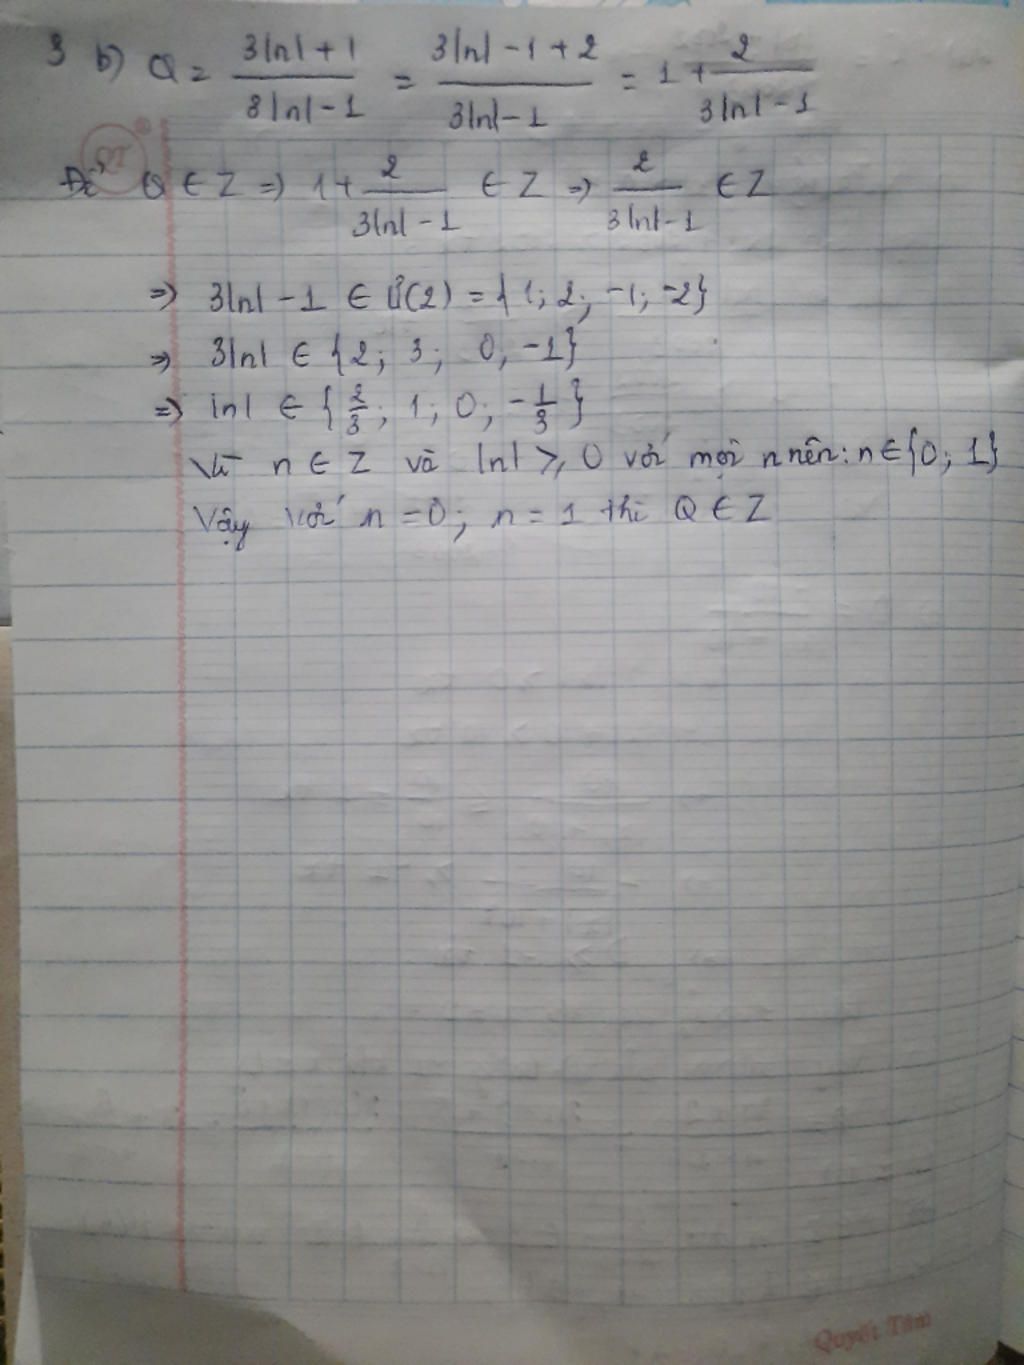 3 b) Q = 3|n| + 1 / 3|n| - 1 = 3|n| - 1 + 2 / 3|n| - 1 = 1 + 2 / 3|n| - 1
Để Q ∈ Z => 1 + 2 / 3|n| - 1 ∈ Z => 2 / 3|n| - 1 ∈ Z
=> 3|n| - 1 ∈ Ư(2) = { 1; 2; -1; -2}
=> 3|n| ∈ {2; 3; 0, -1}
=> |n| ∈ { 2/3; 1; 0; -1/3 }
Vì n ∈ Z và |n| ≥ 0 với mọi n nên: n ∈ {0; 1}
Vậy với n = 0; n = 1 thì Q ∈ Z
Quyết Tâm